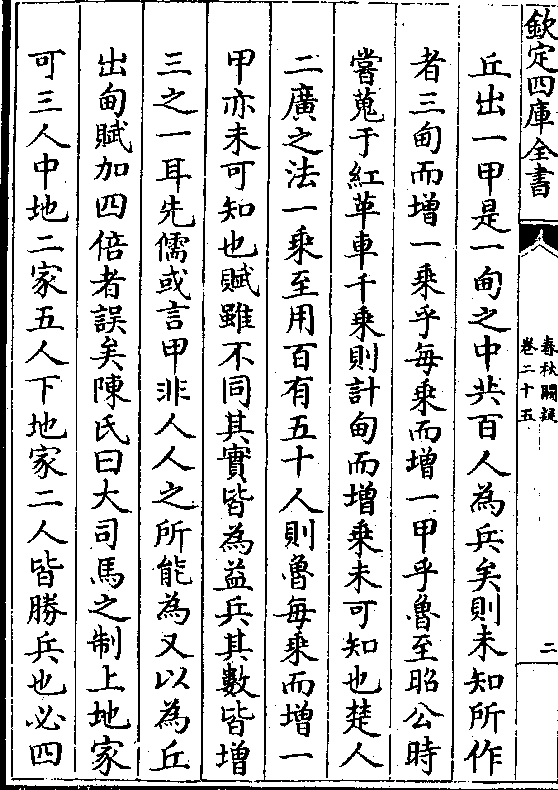 欽定四庫全書
春秋闕疑
卷二十五
二
丘出一甲是一甸之中共百人為兵矣則未知所作
者三甸而增一乘乎每乘而增一甲乎魯至昭公時
嘗蒐于紅革車千乘則計甸而增乘未可知也楚人
二廣之法一乘至用百有五十人則魯每乘而增一
甲亦未可知也賦雖不同其實皆為益兵其數皆增
三之一耳先儒或言甲非人人之所能為又以為丘
出甸賦加四倍者誤矣陳氏曰大司馬之制上地家
可三人中地二家五人下地家二人皆勝兵也必四